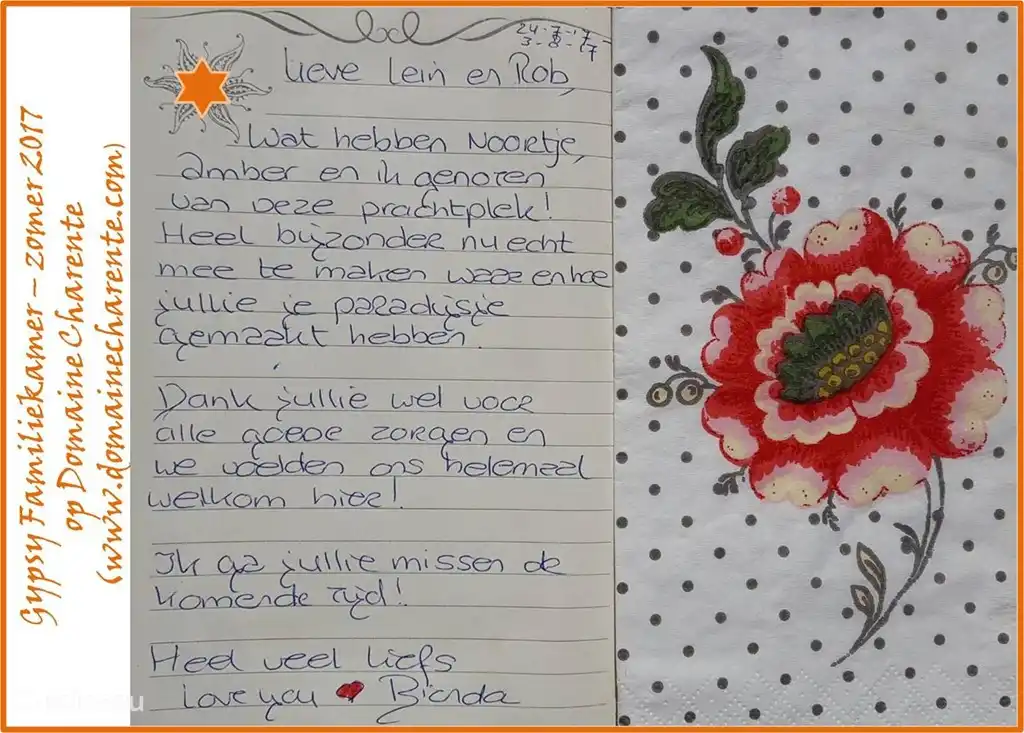 Gypsy Familiekamer – zomer 2017
op Domaine Charente
(www.domainecharente.com)
24-7-17 -
3-8-17
Lieve Lein en Rob,
Wat hebben Noortje,
Amber en ik genoten
van deze prachtplek!
Heel bijzonder nu echt
mee te maken waar en hoe
jullie je paradijsje
gemaakt hebben.
Dank jullie wel voor
alle goede zorgen en
we voelden ons helemaal
welkom hier!
Ik ga jullie missen de
komende tijd!
Heel veel liefs
Love you ♥ Bianda